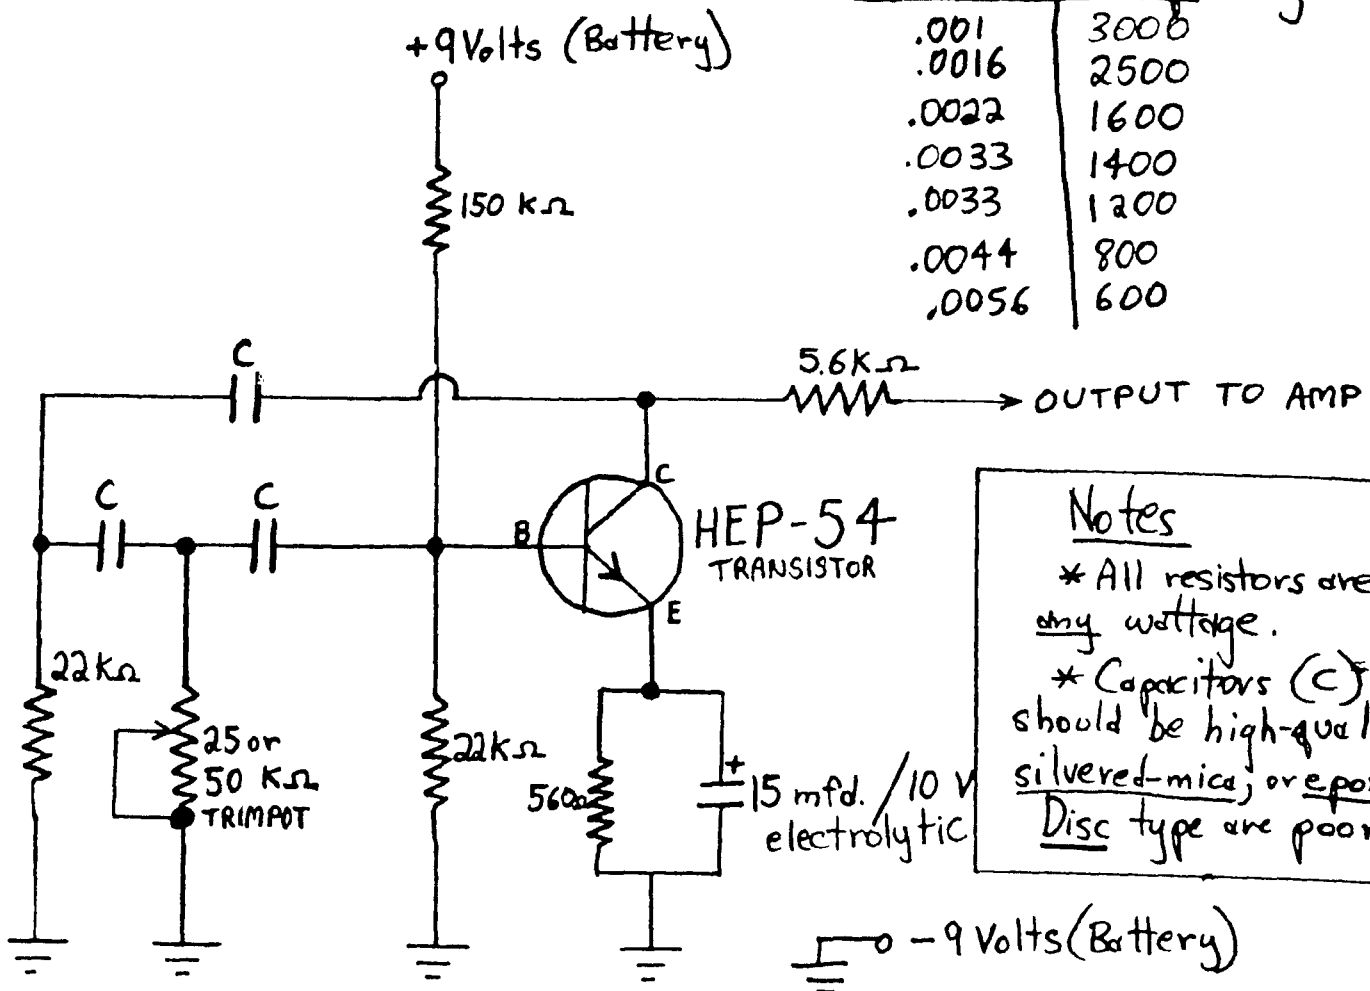 +9 Volts (Battery)
.001 3000
.0016 2500
.0022 1600
.0033 1400
.0033 1200
.0044 800
.0056 600
150 KΩ
C
5.6KΩ
OUTPUT TO AMP
C C
B
C
E
HEP-54
TRANSISTOR
22KΩ
25 or
50 KΩ
TRIMPOT
22KΩ
560Ω
+
15 mfd. /10 V
electrolytic
Notes
* All resistors are
any wattage.
* Capacitors (C)
should be high-qual
silvered-mica, or epo
Disc type are poor
-9 Volts (Battery)